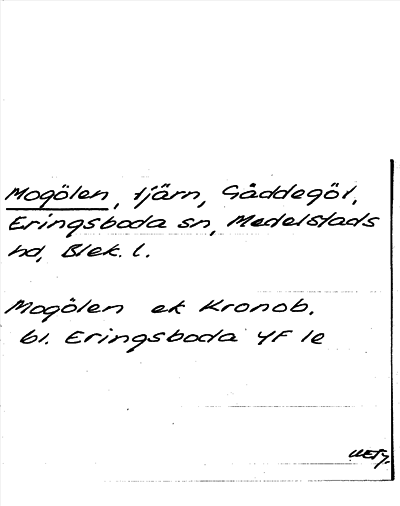 Mogölen, tjärn, Gåddegöl,
Eringsboda sn, Medelstads
hd, Blek. l.
Mogölen ek Kronob.
bl. Eringsboda 4F 1e